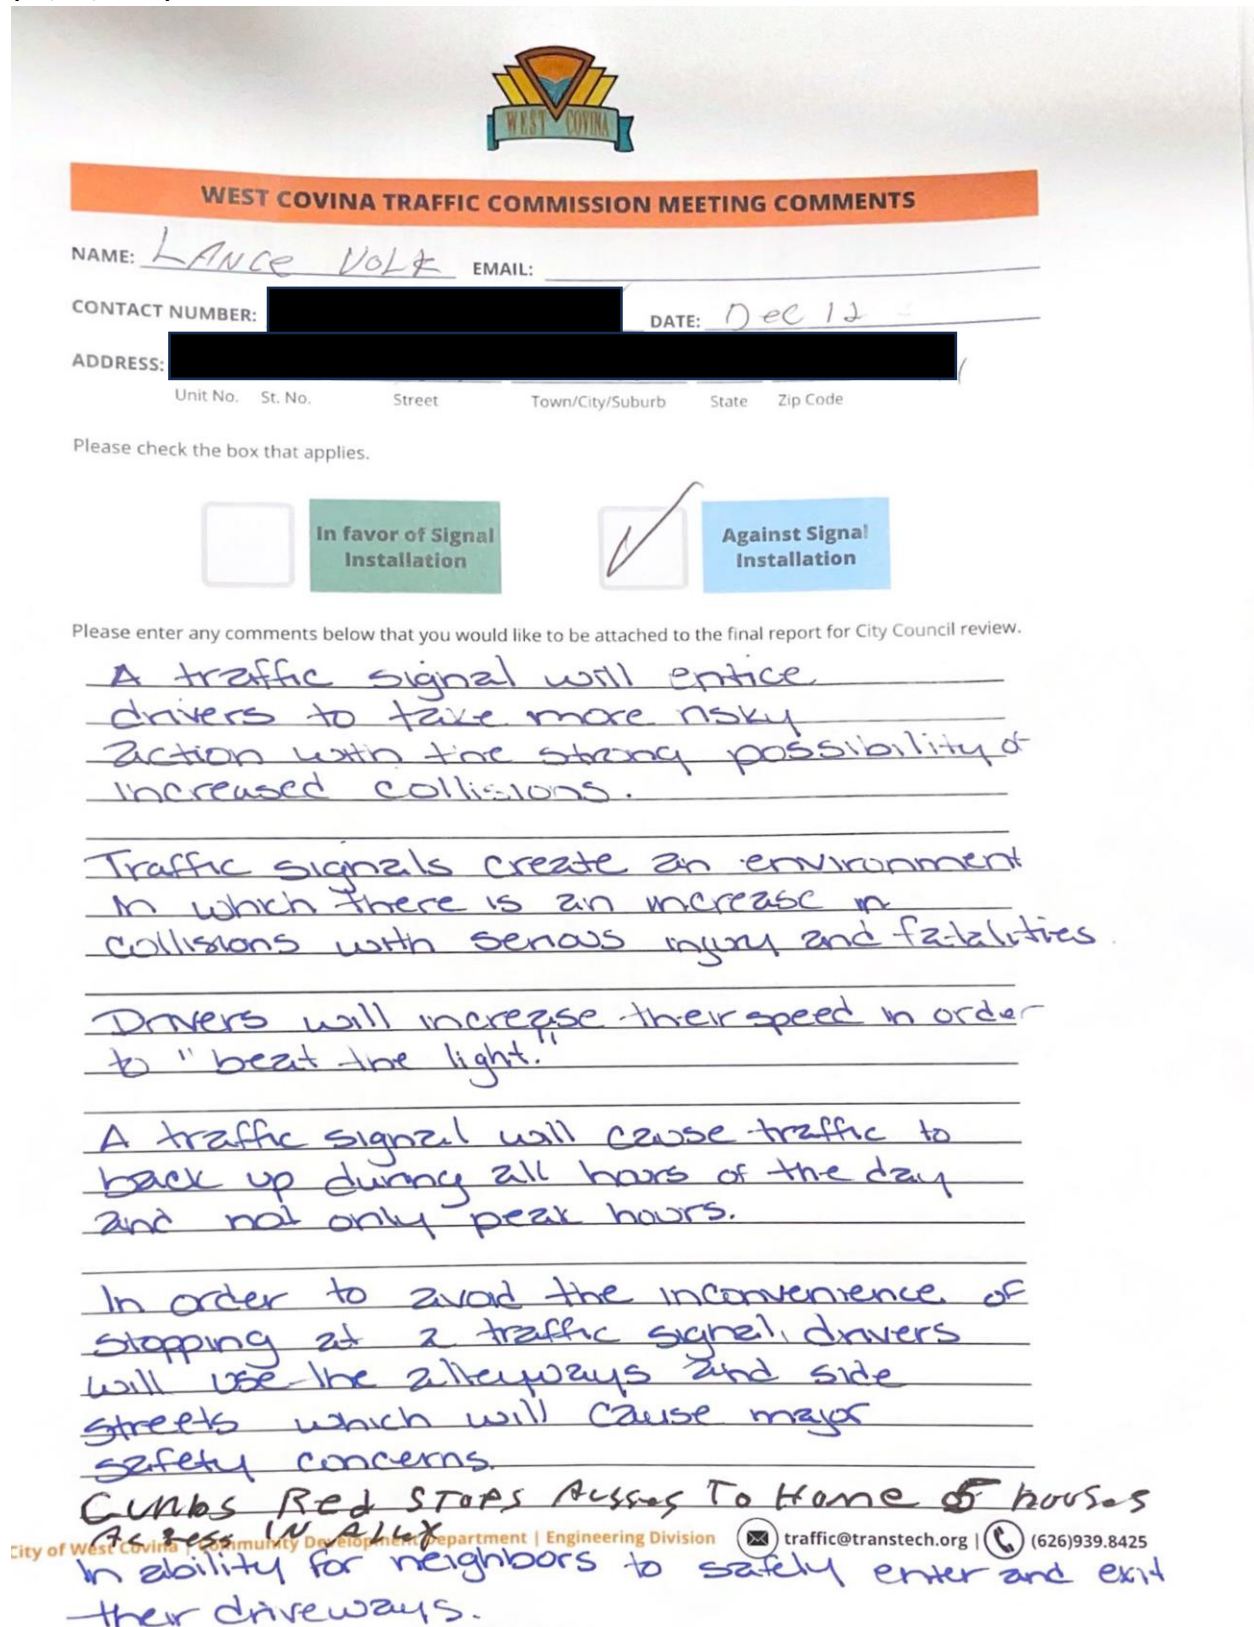 WEST COVINA
WEST COVINA TRAFFIC COMMISSION MEETING COMMENTS
NAME: LANCE VOLK EMAIL:
CONTACT NUMBER: DATE: Dec 12
ADDRESS:
Unit No. St. No. Street Town/City/Suburb State Zip Code
Please check the box that applies.
In favor of Signal
Installation
Against Signal
Installation
Please enter any comments below that you would like to be attached to the final report for City Council review.
A traffic signal will entice
drivers to take more risky
action with the strong possibility of
increased collisions.
Traffic signals create an environment
in which there is an increase in
collisions with serious injury and fatalities.
Drivers will increase their speed in order
to "beat the light."
A traffic signal will cause traffic to
back up during all hours of the day
and not only peak hours.
In order to avoid the inconvenience of
stopping at a traffic signal, drivers
will use the alleyways and side
streets which will cause major
safety concerns.
Red STOPS To Home 5 houses
IN
City of West Covina | Community Development Department | Engineering Division traffic@transtech.org | (626)939.8425
In ability for neighbors to safely enter and exit
their driveways.